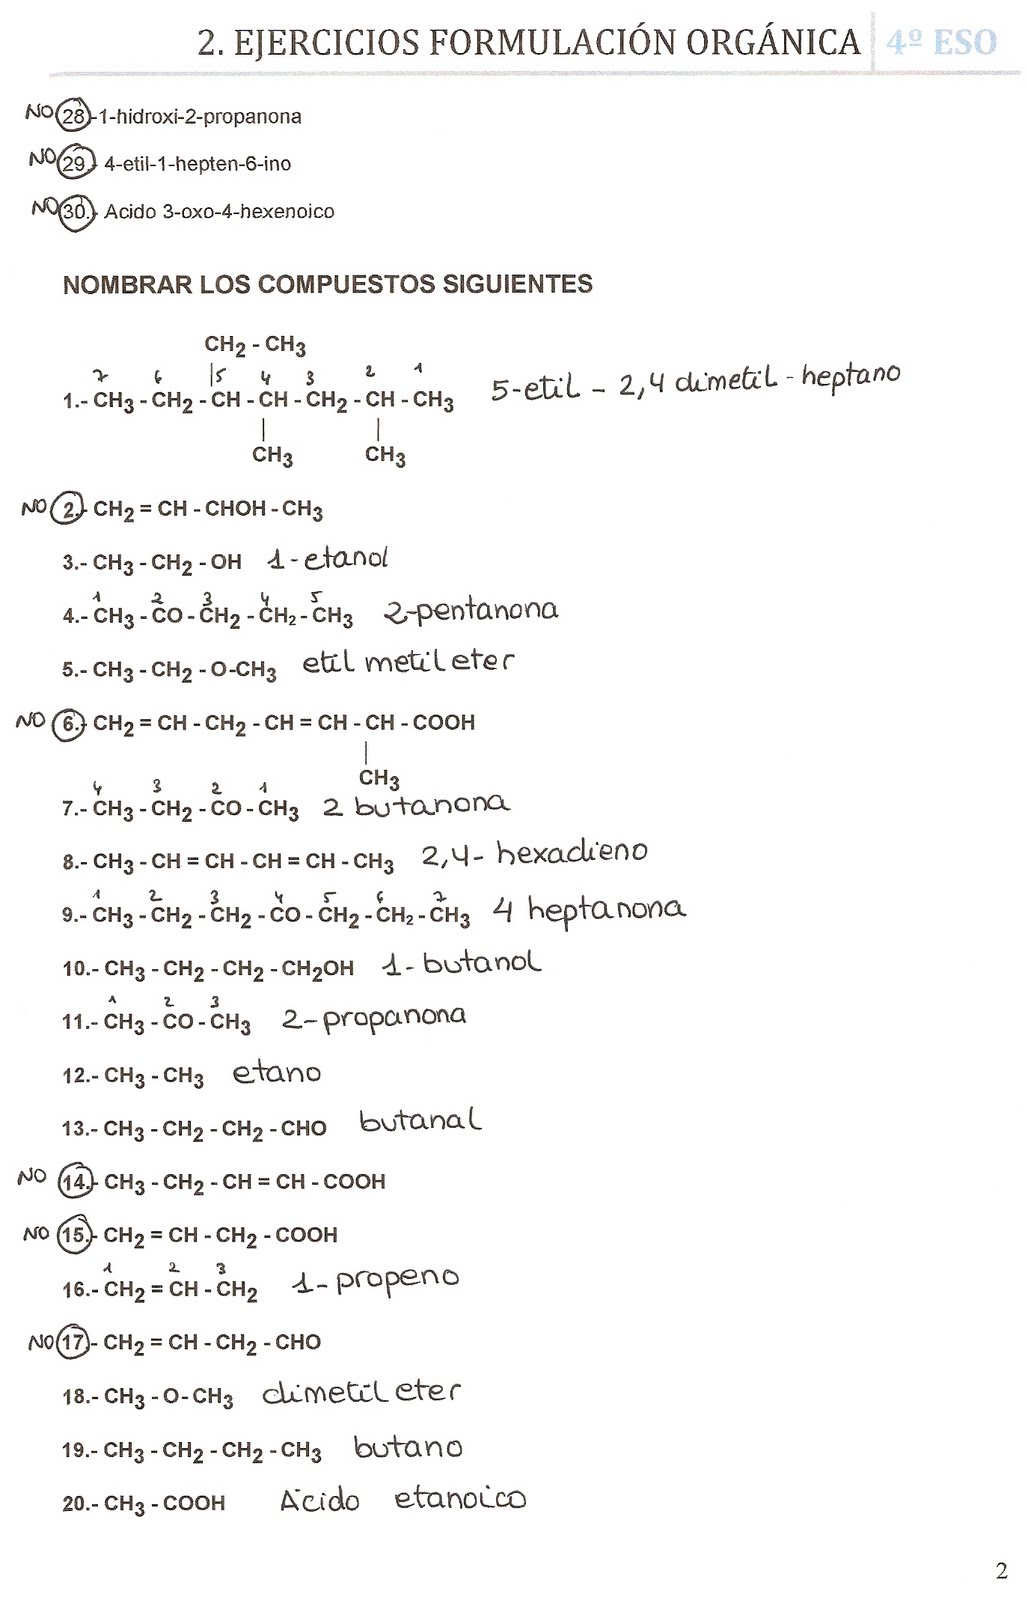 2. EJERCICIOS FORMULACIÓN ORGÁNICA 4º ESO
NO 28.-1-hidroxi-2-propanona
NO 29.- 4-etil-1-hepten-6-ino
NO 30.- Acido 3-oxo-4-hexenoico
NOMBRAR LOS COMPUESTOS SIGUIENTES
CH2 - CH3
7 6 |5 4 3 2 1
1.- CH3 - CH2 - CH - CH - CH2 - CH - CH3 5-etil - 2,4 dimetil - heptano
| |
CH3 CH3
NO 2.- CH2 = CH - CHOH - CH3
3.- CH3 - CH2 - OH 1-etanol
1 2 3 4 5
4.- CH3 - CO - CH2 - CH2 - CH3 2-pentanona
5.- CH3 - CH2 - O-CH3 etil metil eter
NO 6.- CH2 = CH - CH2 - CH = CH - CH - COOH
|
CH3
4 3 2 1
7.- CH3 - CH2 - CO - CH3 2 butanona
8.- CH3 - CH = CH - CH = CH - CH3 2,4- hexadieno
1 2 3 4 5 6 7
9.- CH3 - CH2 - CH2 - CO - CH2 - CH2 - CH3 4 heptanona
10.- CH3 - CH2 - CH2 - CH2OH 1-butanol
1 2 3
11.- CH3 - CO - CH3 2-propanona
12.- CH3 - CH3 etano
13.- CH3 - CH2 - CH2 - CHO butanal
NO 14.- CH3 - CH2 - CH = CH - COOH
NO 15.- CH2 = CH - CH2 - COOH
1 2 3
16.- CH2 = CH - CH2 1-propeno
NO 17.- CH2 = CH - CH2 - CHO
18.- CH3 - O - CH3 dimetil eter
19.- CH3 - CH2 - CH2 - CH3 butano
20.- CH3 - COOH Ácido etanoico
2